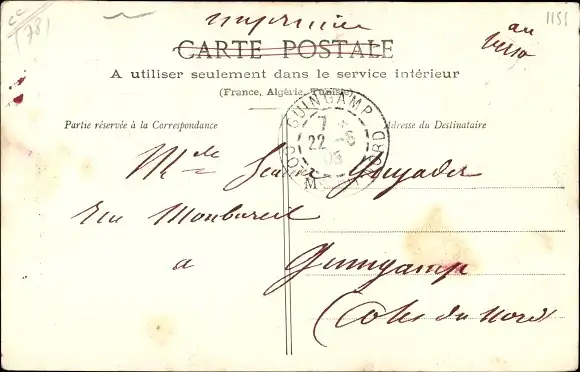 cc
(78)
1155
Imprimée
au
verso
CARTE POSTALE
A utiliser seulement dans le service intérieur
(France, Algérie, Tunisie)
GUINGAMP
7
22 -5
03
CÔTES DU NORD
Partie réservée à la Correspondance
Adresse du Destinataire
Melle Guyader
Rue Montbareil
a
Guingamp
(Côtes du Nord)